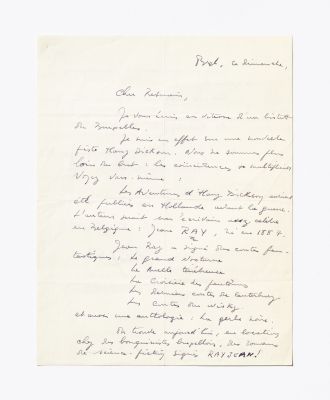 ce dimanche,
Cher
Je vous écris, en
de Bruxelles.
Je suis en effet sur une nouvelle
piste Harry Dickson. Nous ne sommes plus
loin du but : les coïncidences se multiplient
Voyez vous-même :
Les Aventures d'Harry Dickson
été publiées en Hollande avant la guerre.
L'auteur serait un écrivain assez célèbre
en Belgique : Jean RAY, né en 1887.
Jean Ray a signé des contes fan-
tastiques : Le grand nocturne
La Ruelle ténébreuse
La Croisière des fantômes
Les Derniers contes de Canterbury
Les Contes du Wisky
et aussi une anthologie : La perle noire.
On trouve aujourd'hui, en location
chez des bouquinistes bruxellois, des romans
de science-fiction signés RAYJEAN!